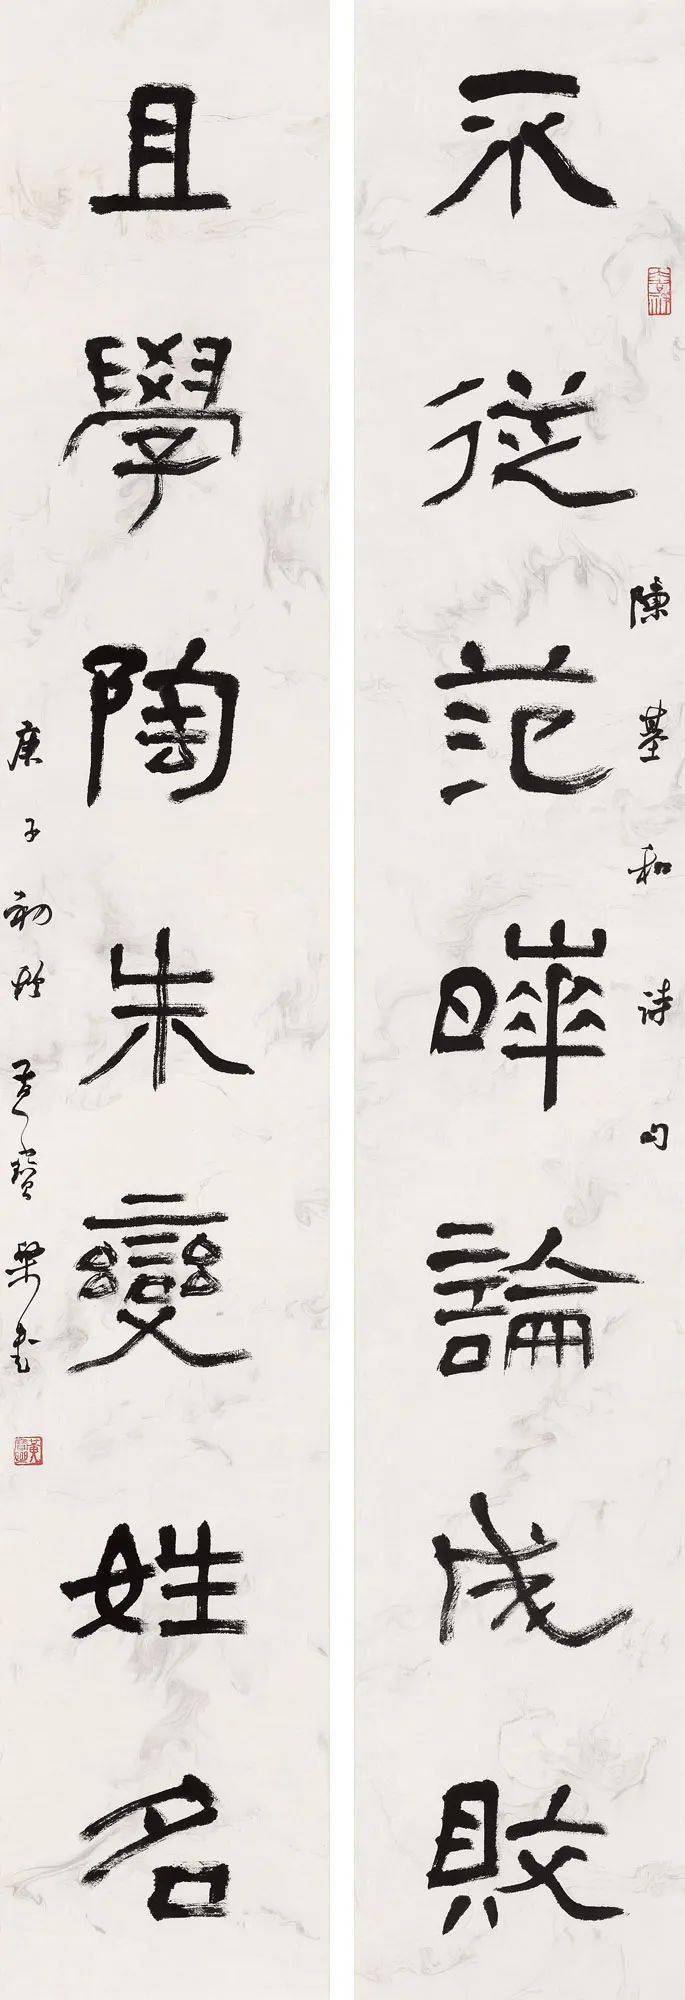 陳基和詩句
不從范曄論成敗
且學陶朱變姓名
庚子初秋黃寶書